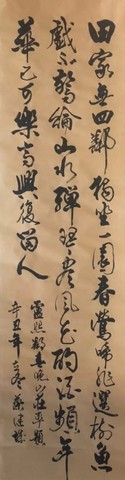 田家無四鄰獨坐一園春鶯啼非選樹魚
戲不驚綸山水彈琴盡風花酌酒頻年
華已可樂高興復留人
盧照鄰春晚山莊率題
辛丑年